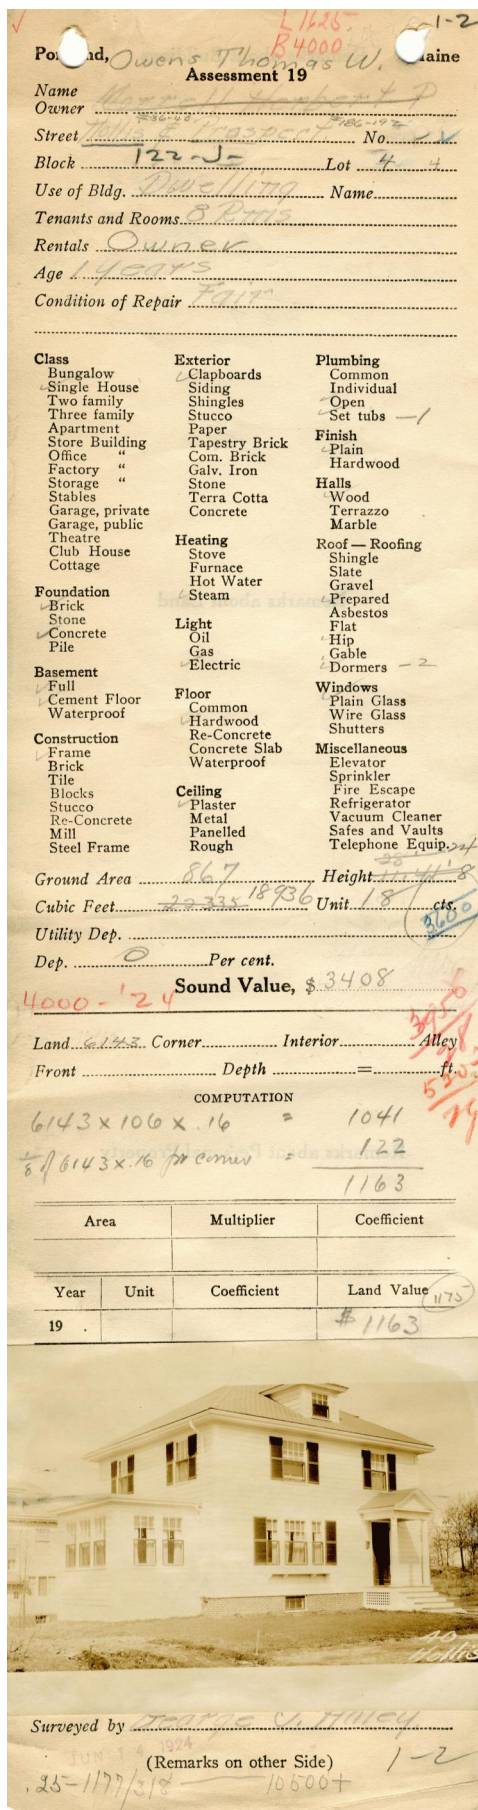 L 1625
B 4000
1-2
Portland, Owens Thomas W. Maine
Assessment 19
Name
Owner
Street Hollis & Prospect No.
Block 122-J- Lot 4 4
Use of Bldg. Dwelling Name
Tenants and Rooms 8 Rms
Rentals Owner
Age 1 years
Condition of Repair Fair
Class
Bungalow
Single House
Two family
Three family
Apartment
Store Building
Office "
Factory "
Storage "
Stables
Garage, private
Garage, public
Theatre
Club House
Cottage
Foundation
Brick
Stone
Concrete
Pile
Basement
Full
Cement Floor
Waterproof
Construction
Frame
Brick
Tile
Blocks
Stucco
Re-Concrete
Mill
Steel Frame
Exterior
Clapboards
Siding
Shingles
Stucco
Paper
Tapestry Brick
Com. Brick
Galv. Iron
Stone
Terra Cotta
Concrete
Heating
Stove
Furnace
Hot Water
Steam
Light
Oil
Gas
Electric
Floor
Common
Hardwood
Re-Concrete
Concrete Slab
Waterproof
Ceiling
Plaster
Metal
Panelled
Rough
Plumbing
Common
Individual
Open
Set tubs —1
Finish
Plain
Hardwood
Halls
Wood
Terrazzo
Marble
Roof — Roofing
Shingle
Slate
Gravel
Prepared
Asbestos
Flat
Hip
Gable
Dormers — 2
Windows
Plain Glass
Wire Glass
Shutters
Miscellaneous
Elevator
Sprinkler
Fire Escape
Refrigerator
Vacuum Cleaner
Safes and Vaults
Telephone Equip.
Ground Area 867 Height
Cubic Feet 22335 18936 Unit 18 cts.
3600
Utility Dep.
Dep. 0 Per cent.
Sound Value, $ 3408
4000 - '24
Land 6143 Corner Interior Alley
Front Depth = ft.
COMPUTATION
6143 x 106 x .16 = 1041
1/8 of 6143 x .16 for corner = 122
1163
Area Multiplier Coefficient
Year Unit Coefficient Land Value 1175
19 . $ 1163
40
Hollis
Surveyed by George J. Haley
JUN 1924
(Remarks on other Side) 1-2
.25-1177/318 — 10500+